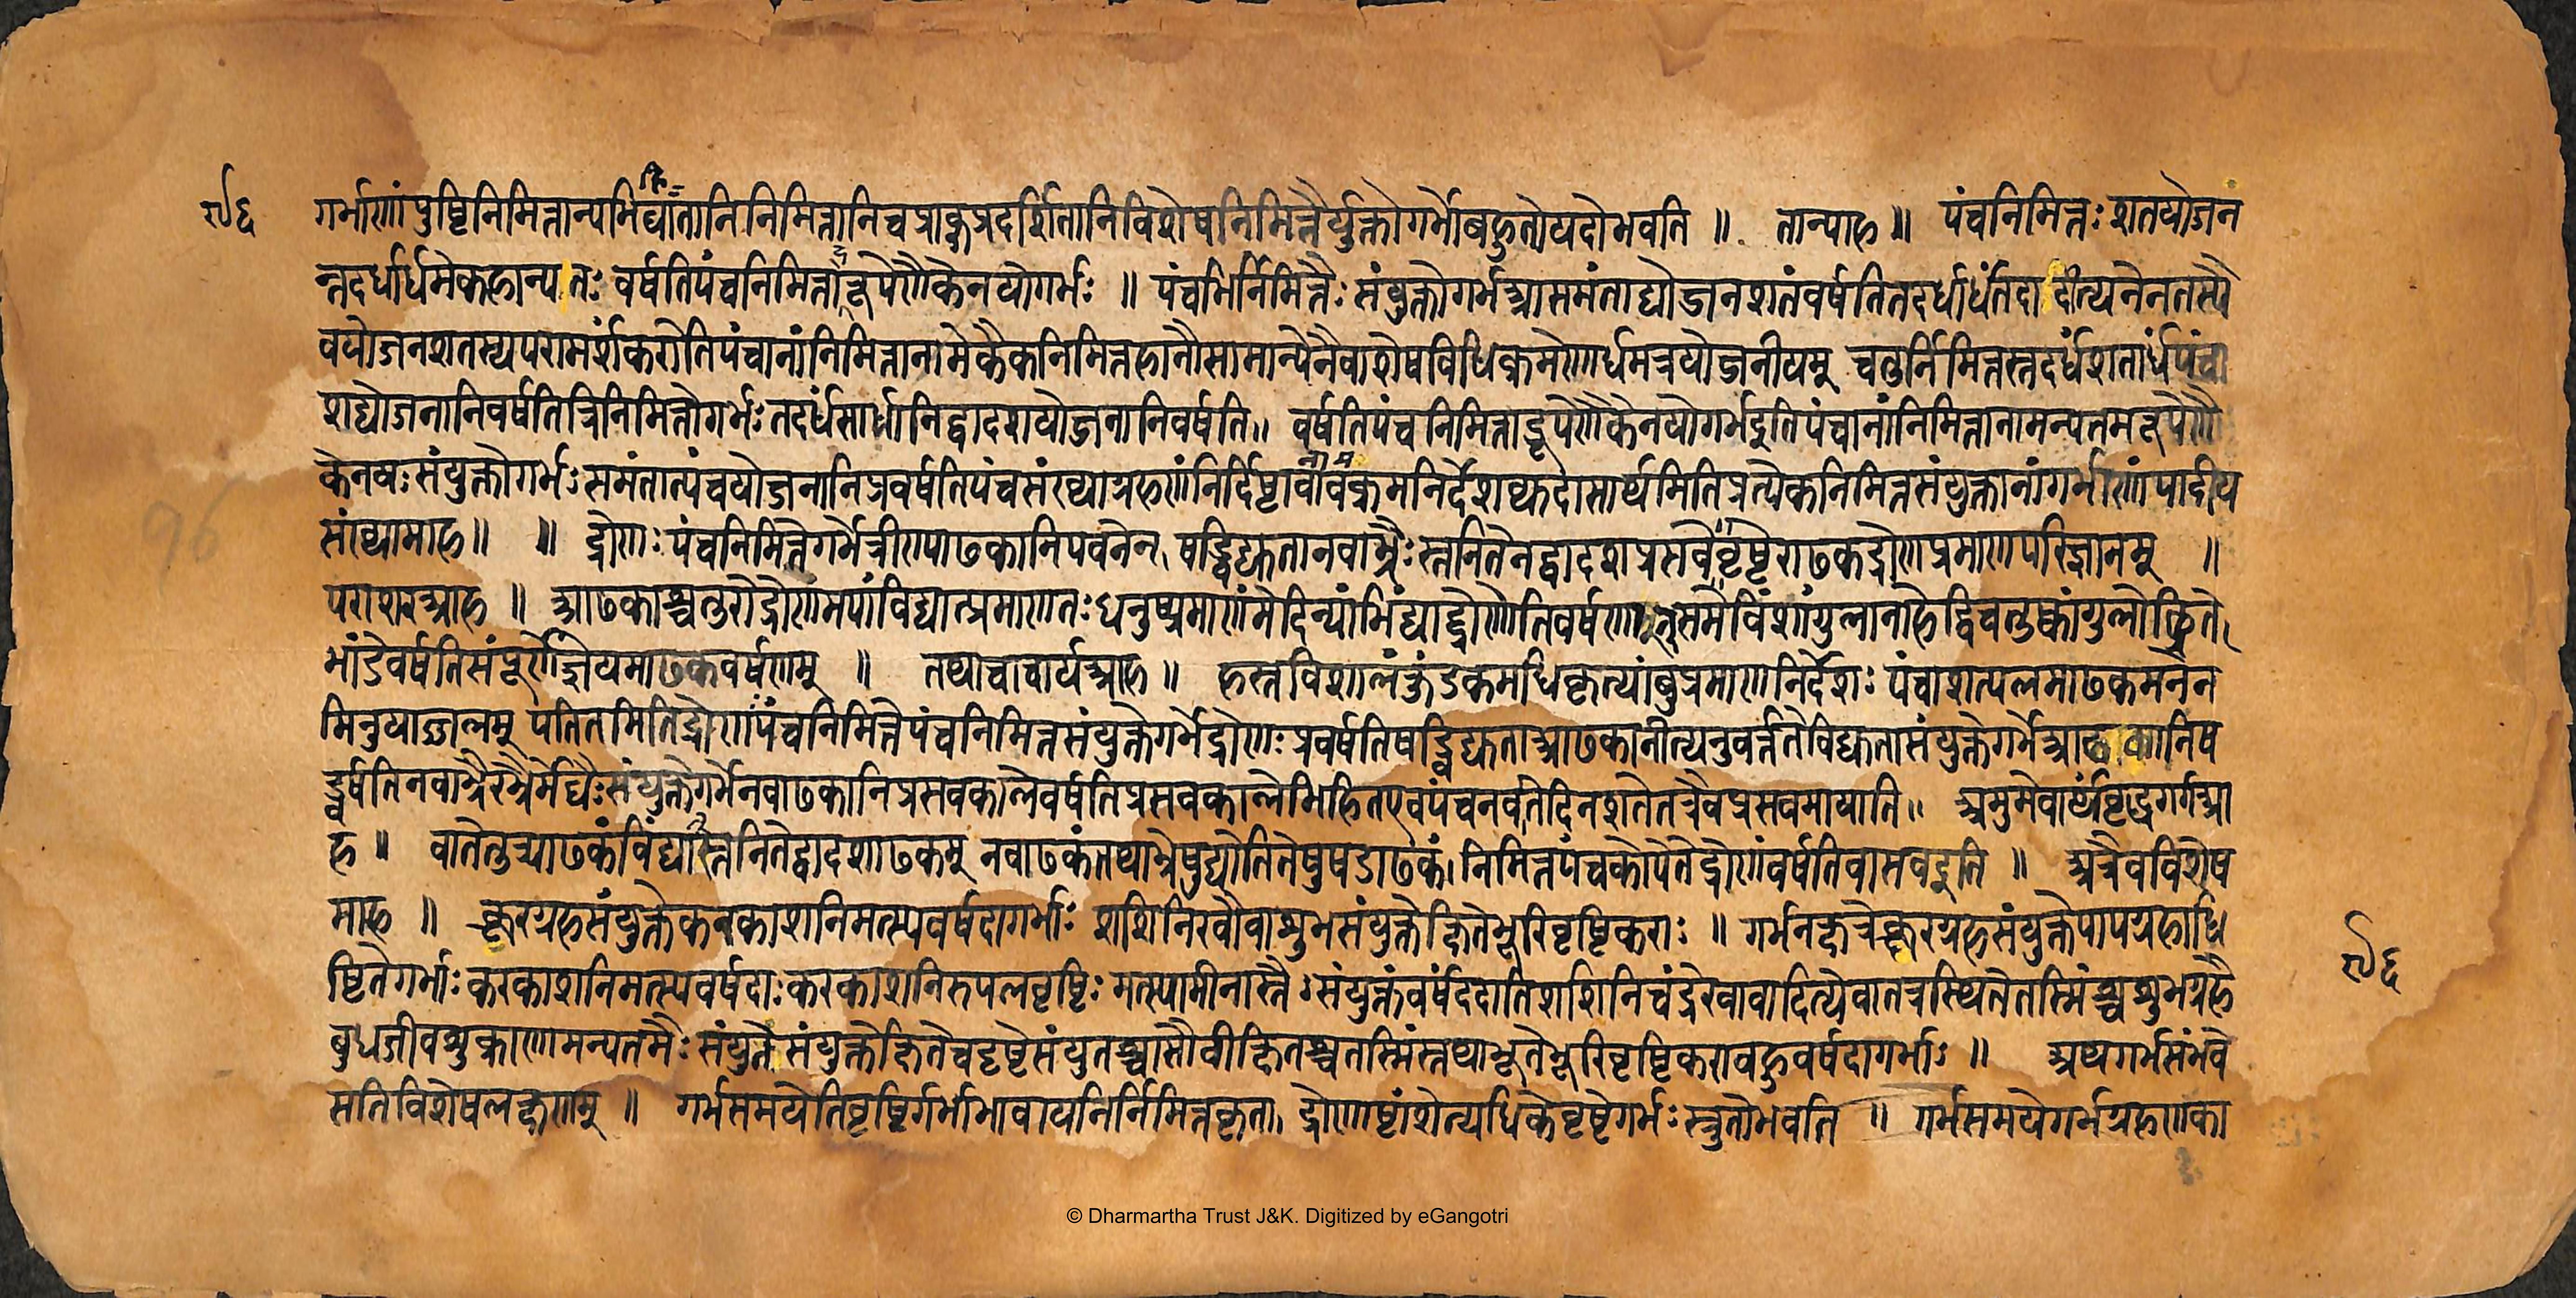 ९६ गर्भाणां पुष्टिनिमित्तान्यभिघातानिनिमित्तानिचप्राक्प्रदर्शितानिविशेषनिमित्तैर्युक्तोगर्भोबहुतोयदोभवति ॥ तान्याह ॥ पंचनिमित्तः शतयोजन
न्तदर्धार्धमेकहान्यतः वर्षतिपंचनिमित्ताद्रूपेणैकेनयोगर्भः ॥ पंचभिर्निमित्तैः संयुक्तोगर्भआसमंताद्योजनशतंवर्षतितदर्धार्धंतदादीत्यनेनतस्यै
वयोजनशतस्यपरामर्शंकरोतिपंचानांनिमित्तानामेकैकनिमित्तहानौसामान्येनैवाशेषविधिक्रमेणार्धमत्रयोजनीयम् चतुर्निमित्तस्तदर्धंशतार्धपंचा
शद्योजनानिवर्षतित्रिनिमित्तोगर्भः तदर्धंसार्धानिद्वादशयोजनानिवर्षति॥ वर्षतिपंचनिमित्ताद्रूपेणैकेनयोगर्भइतिपंचानांनिमित्तानामन्यतमरूपेणै
केनयः संयुक्तोगर्भः समंतात्पंचयोजनानिप्रवर्षतिपंचसंख्याग्रहणंनिर्दिष्टा क्रमनिर्देश मितिप्रत्येकनिमित्तसंयुक्तानांगर्भाणांपादीय
संख्यामाह॥ ॥ द्रोणः पंचनिमित्तेगर्भेत्रीण्याढकानिपवनेन षड्विद्युतानवाभ्रैः स्तनितेनद्वादशप्रसवे आढकद्रोणप्रमाणपरिज्ञानम् ॥
पराशरआह ॥ आढकाश्चतुरोद्रोणमपांविद्यात्प्रमाणतः धनुष्प्रमाणंमेदिन्यांविंद्याद्द्रोणेतिवर्षणम् समेविंशांगुलानाहेद्विचतुष्कांगुलोच्छ्रिते
भांडेवर्षतिसंपूर्णेज्ञेयमाढकवर्षणम् ॥ तथाचाचार्यआह ॥ हस्तविशालंकुंडकमधिकृत्यांबुप्रमाणनिर्देशः पंचाशत्पलमाढकमनेन
मिनुयाज्जलम् पतितमितिद्रोणः पंचनिमित्तेपंचनिमित्तसंयुक्तेगर्भेद्रोणः प्रवर्षतिषड्विद्युताआढकानीत्यनुवर्त्ततेविद्युतासंयुक्तेगर्भेआढकानिष
ड्वर्षतिनवाभ्रैरभ्रैर्मेघैः संयुक्तेगर्भेनवाढकानिप्रसवकालेवर्षतिप्रसवकालेभिहितएवपंचनवतेदिनशतेतत्रैवप्रसवमायाति॥ अमुमेवार्थंवृद्धगर्गआ
ह ॥ वातेतुत्र्याढकंविंद्यात्स्तनितेद्वादशाढकम् नवाढकंतथाभ्रेषुद्योतितेषुषडाढकं। निमित्तपंचकोपेतेद्रोणंवर्षतिवासवइति ॥ अत्रैवविशेष
माह ॥ क्रूरग्रहसंयुक्तेकरकाशनिमत्स्यवर्षदागर्भाः शशिनिरवौवाशुभसंयुक्तेक्षितेभूरिवृष्टिकराः ॥ गर्भनक्षत्रेक्रूरग्रहसंयुक्तेपापग्रहाधि
ष्ठितेगर्भाः करकाशनिमत्स्यवर्षदाः करकाशनिरुपलवृष्टिः मत्स्यामीनास्तैः संयुक्तंवर्षंददातिशशिनिचंद्रेरवावादित्येवातत्रस्थितेतस्मिंश्चशुभग्रहै ९६
बुधजीवशुक्राणामन्यतमैः संयुते संयुक्तेक्षितेचदृष्टेसंयुतश्चासौवीक्षितश्चतस्मिंस्तथाभूतेभूरिवृष्टिकराबहुवर्षदागर्भाः ॥ अथगर्भसंभवे
सतिविशेषलक्षणम् ॥ गर्भसमयेतिवृष्टिर्गर्भाभावायनिर्निमित्तकृता। द्रोणाष्टांशेत्यधिकेवृष्टेगर्भः स्रुतोभवति ॥ गर्भसमयेगर्भग्रहणका
96
© Dharmartha Trust J&K. Digitized by eGangotri